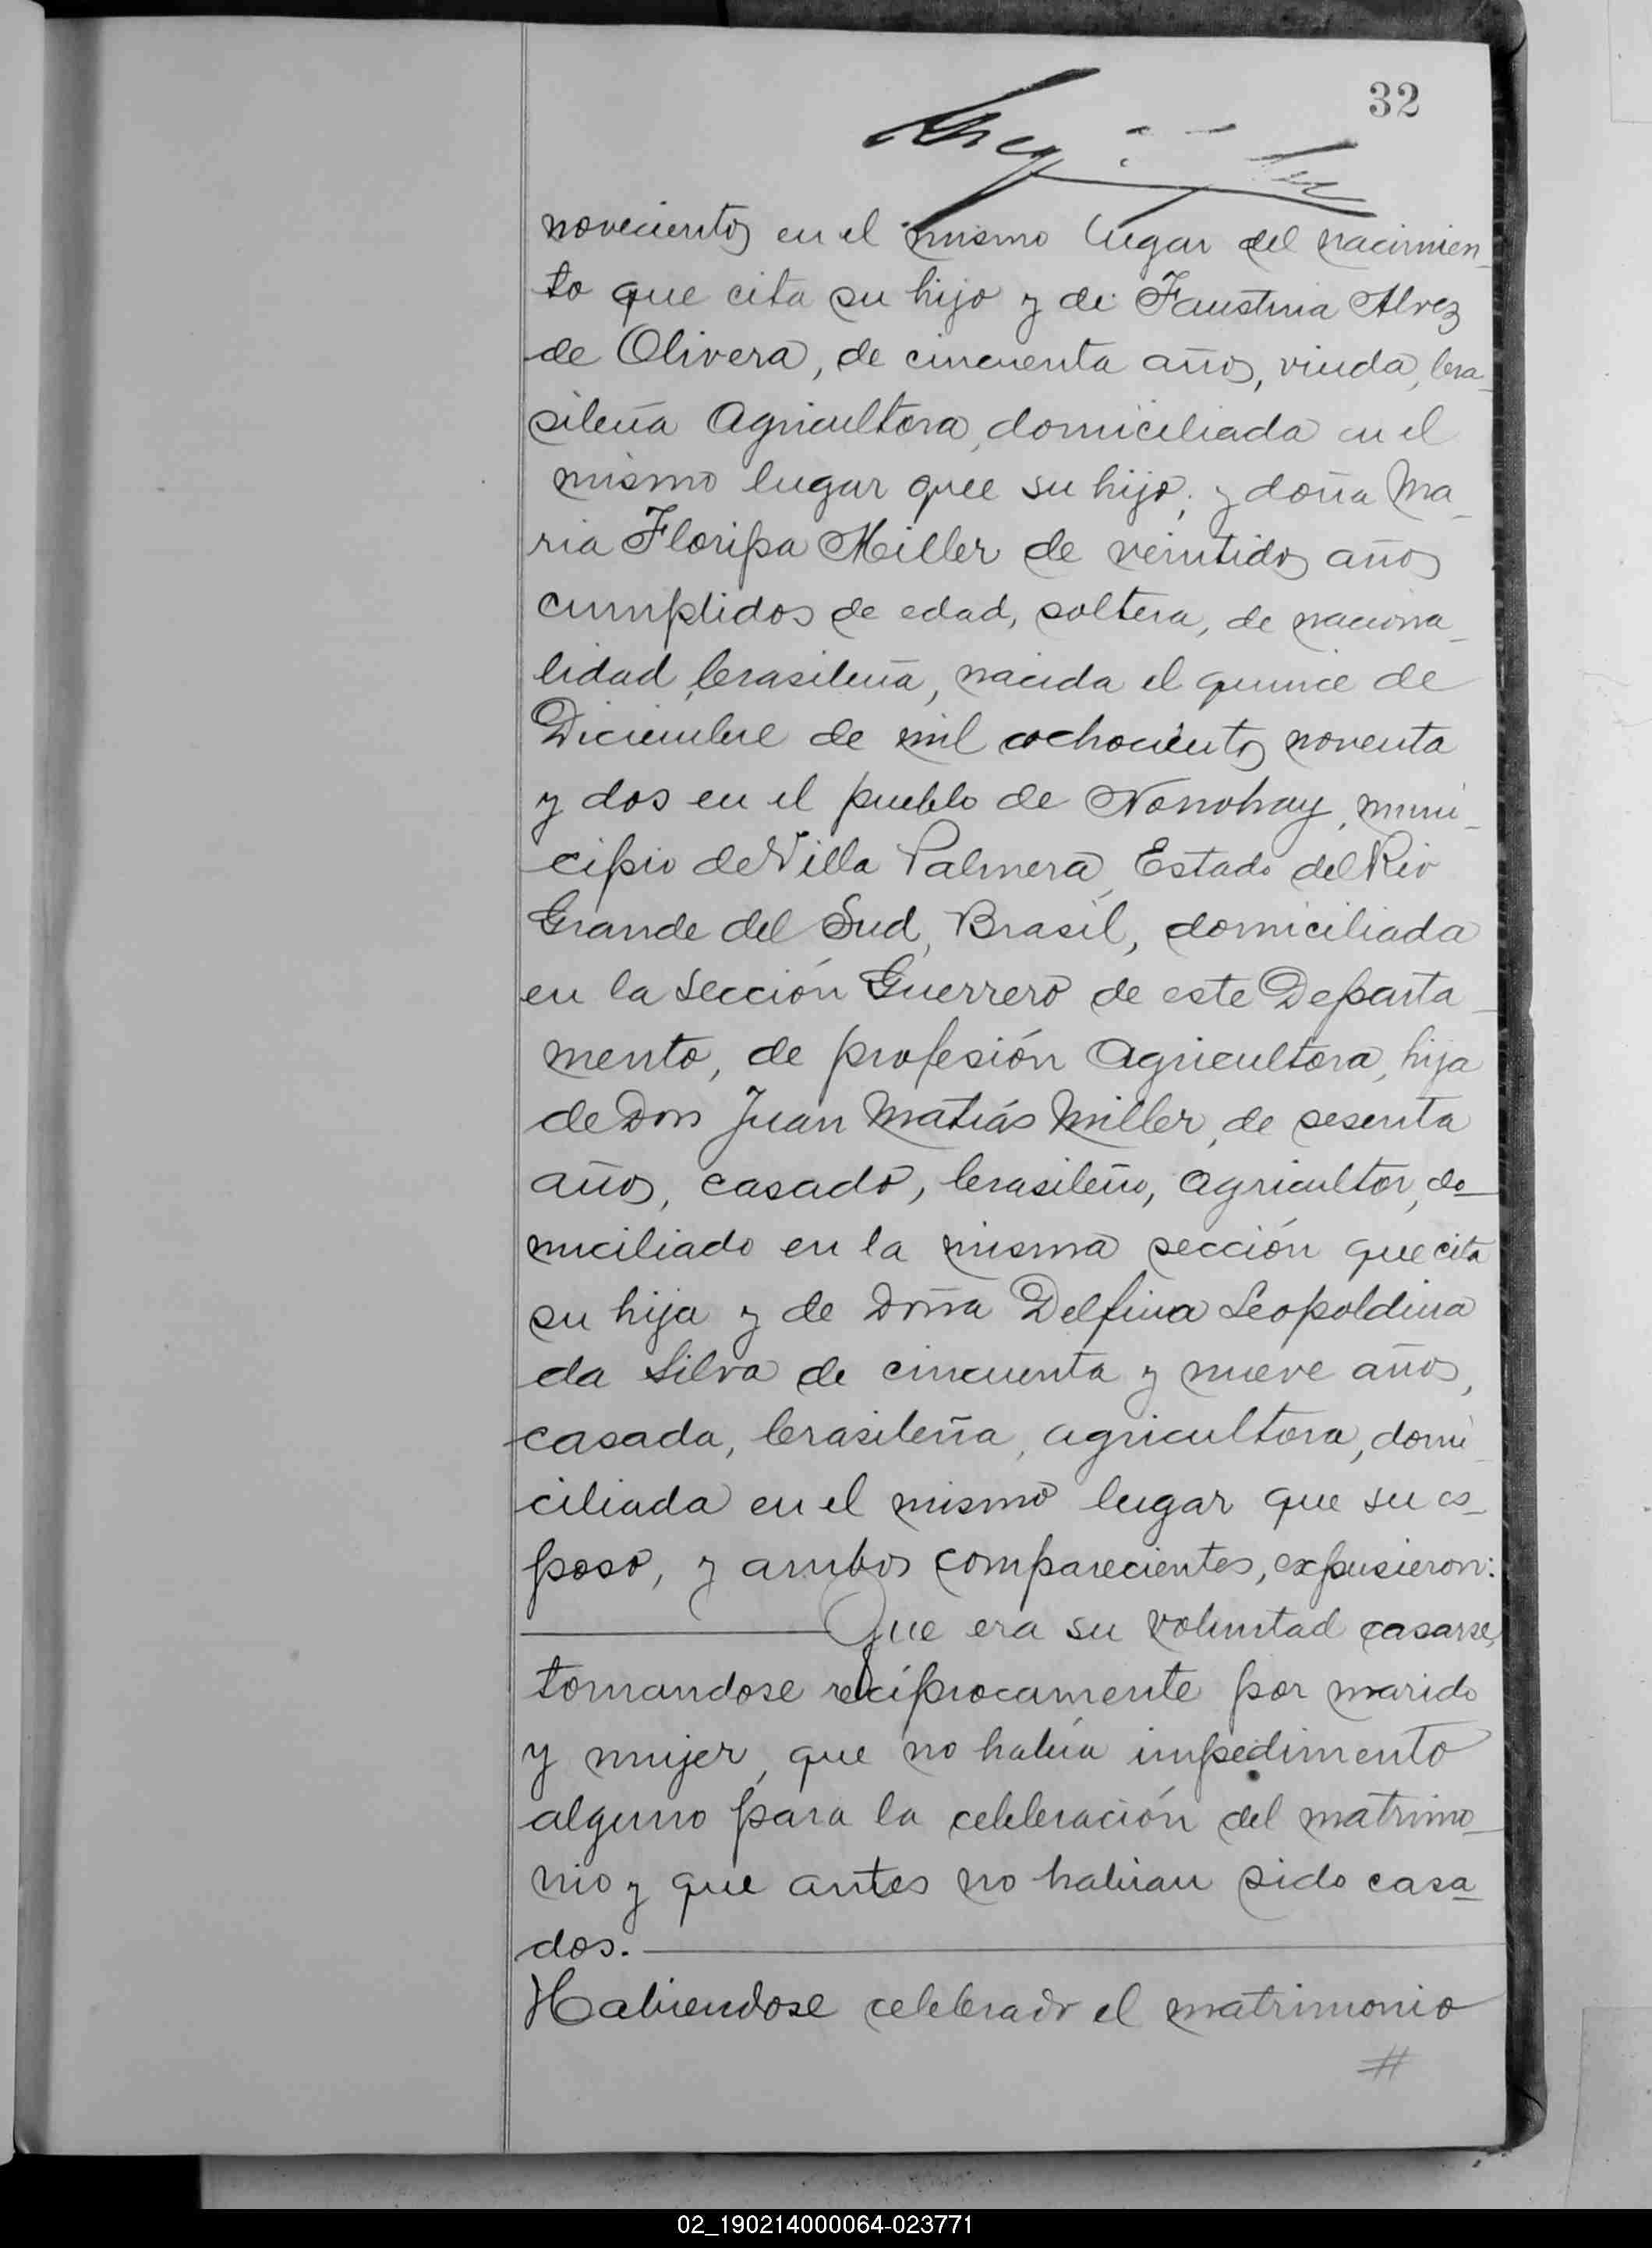 32
novecientos en el mismo lugar del nacimien-
to que cita su hijo y de Faustina Alvez
de Olivera, de cincuenta años, viuda, bra-
sileña Agricultora, domiciliada en el
mismo lugar que su hijo; y doña Ma-
ria Floripa Miller de veintidos años
cumplidos de edad, soltera, de naciona-
lidad brasileña, nacida el quince de
Diciembre de mil ochocientos noventa
y dos en el pueblo de Nonohay, muni-
cipio de Villa Palmera, Estado del Rio
Grande del Sud, Brasil, domiciliada
en la sección Guerrero de este Departa-
mento, de profesión Agricultora, hija
de Don Juan Matiás Miller, de sesenta
años, casado, brasileño, Agricultor, do-
miciliado en la misma sección que cita
su hija y de Doña Delfina Leopoldina
da Silva de cincuenta y nueve años,
casada, brasileña, agricultora, domi-
ciliada en el mismo lugar que su es-
poso, y ambos comparecientes, expusieron:
Que era su voluntad casarse,
tomandose recíprocamente por marido
y mujer, que no había impedimento
alguno para la celebración del matrimo-
nio y que antes no habian sido casa-
dos.
Habiendose celebrado el matrimonio
#
02_190214000064-023771